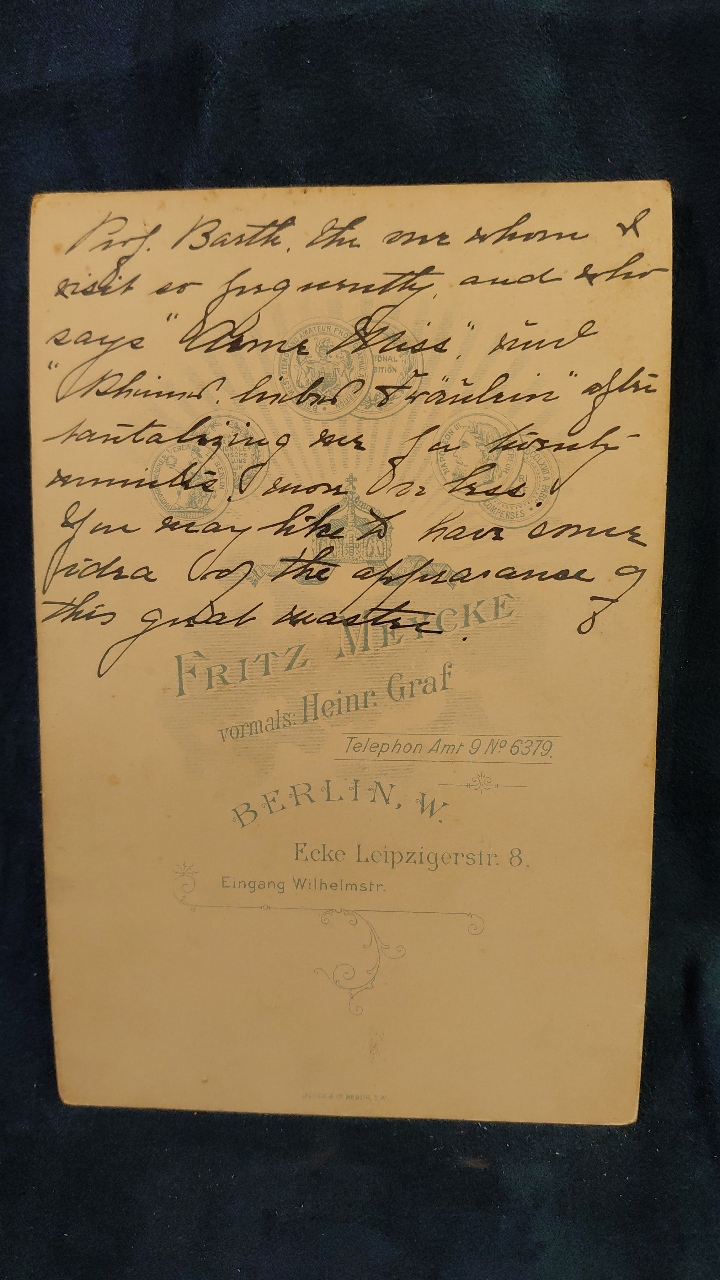 Prof. Barth, the one whom I
visit so frequently, and who
says "Arme Miss", und
lieber Fräulein" after
tantalizing me for twenty
minutes, more or less.
You may like to have some
idea of the appearance of
this great master.
FRITZ MEYCKE
vormals: Heinr. Graf
Telephon Amt 9 No 6379.
BERLIN, W.
Ecke Leipzigerstr. 8.
Eingang Wilhelmstr.